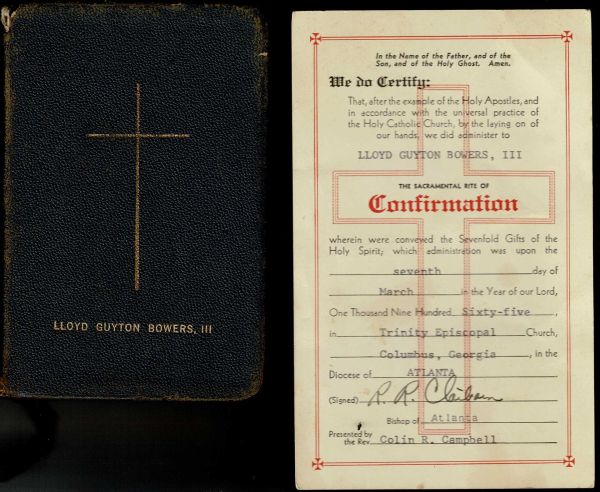 LLOYD GUYTON BOWERS, III
In the Name of the Father, and of the
Son, and of the Holy Ghost. Amen.
We do Certify:
That, after the example of the Holy Apostles, and
in accordance with the universal practice of
the Holy Catholic Church, by the laying on of
our hands, we did administer to
LLOYD GUYTON BOWERS, III
THE SACRAMENTAL RITE OF
Confirmation
wherein were conveyed the Sevenfold Gifts of the
Holy Spirit; which administration was upon the
seventh day of
March in the Year of our Lord,
One Thousand Nine Hundred Sixty-five,
in Trinity Episcopal Church,
Columbus, Georgia, in the
Diocese of ATLANTA
(Signed) R. R. Claiborne
Bishop of Atlanta
Presented by
the Rev. Colin R. Campbell